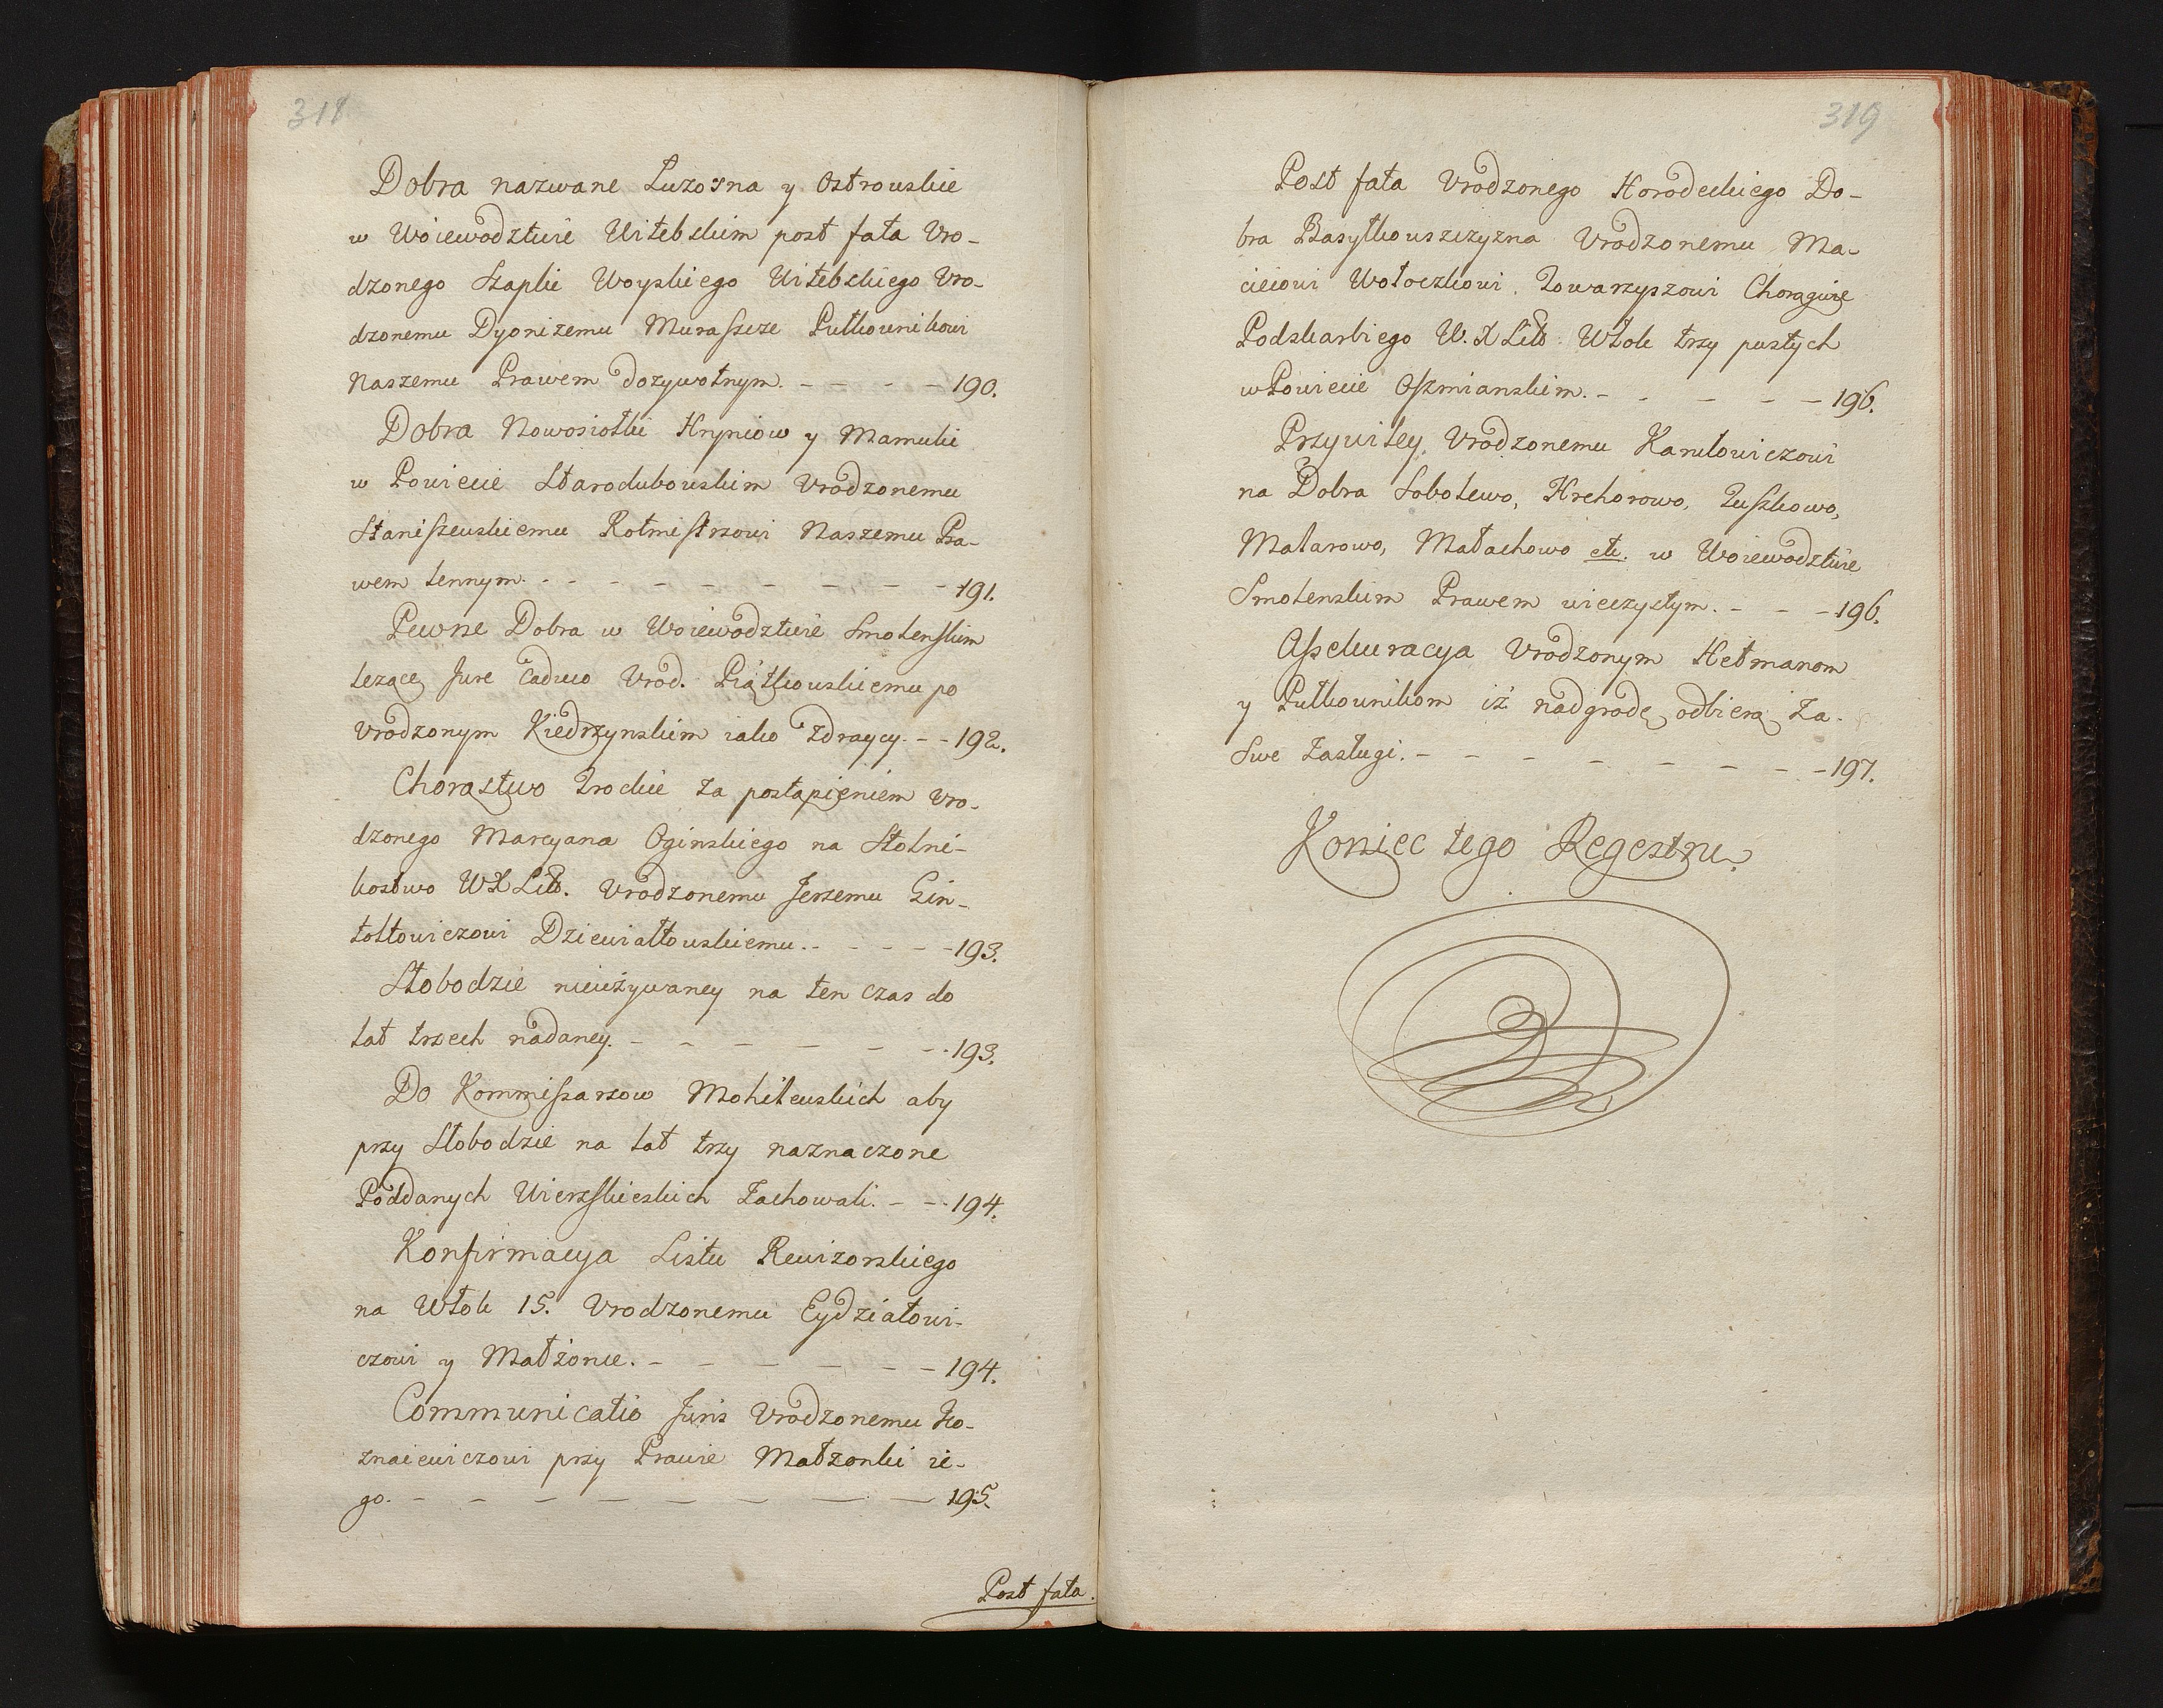 318
Dobra nazwane Luzosna y Ostrowskie
w Woiewodztwie Witebskim post fata Vro-
dzonego Szapki Woyskiego Witebskiego Vro-
dzonemu Dyonizemu Muraszce Pułkownikowi
Naszemu Prawem dozywotnym. - - - - 190.
Dobra Nowosiołki Hryniow y Mamuki
w Powiecie Starodubowskim Vrodzonemu
Staniszewskiemu Rotmistrzowi Naszemu Pra-
wem lennym. - - - - - - - - 191.
Pewne Dobra w Woiewodztwie Smolenskim
lezące Jure Caduco Vrod. Piątkowskiemu po
Vrodzonym Kiedrzynskim iako Zdraycy. - - 192.
Chorąstwo Trockie za postąpieniem Vro-
dzonego Marcyana Oginskiego na Stolni-
kostwo WX Litt. Vrodzonemu Jerzemu Gin-
tołtowiczowi Dziewiałtowskiemu. - - - - - 193.
Słobodzie nieużywaney na ten czas do
lat trzech nadaney. - - - - - - 193.
Do Kommissarzow Mohilewskich aby
przy Słobodzie na lat trzy naznaczone
Poddanych Wierzskieskich zachowali. - - 194.
Konfirmacya Listu Rewizorskiego
na Włok 15. Vrodzonemu Eydziatowi-
czowi y Małżonce. - - - - - - 194.
Communicatio Juris Vrodzonemu Ko-
znaiewiczowi przy Prawie Małzonki ie-
go. - - - - - - - - 195.
Post fata.
319
Post fata Vrodzonego Horodeckiego Do-
bra Basylkowszczyzna Vrodzonemu Ma-
cieiowi Wołoczkowi Towarzyszowi Chorągwie
Podskarbiego W. X Litt. Włok trzy pustych
w Powiecie Oszmianskim. - - - - - 196.
Przywiley Vrodzonemu Karulowiczowi
na Dobra Sobolewo, Hrehorowo, Luszkowo,
Matarowo, Małachowo etc. w Woiewodztwie
Smolenskim Prawem wieczystym. - - - 196.
Assekuracya Vrodzonym Hetmanom
y Pułkownikom iż nadgrodę odbiorą za
Swe Zasługi. - - - - - - - 197.
Koniec tego Regestru.